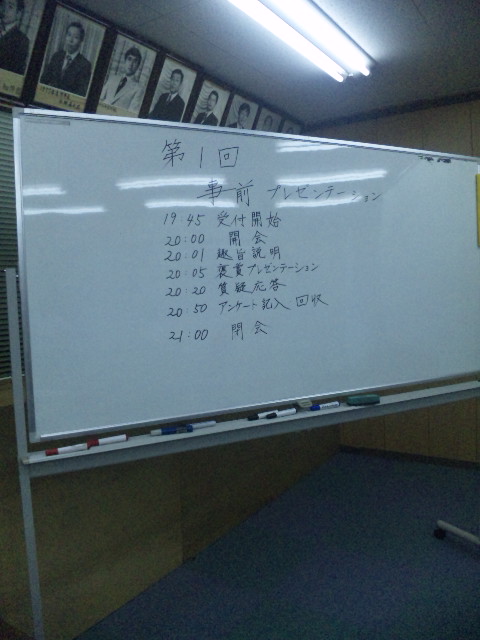 第1回
事前プレゼンテーション
19:45 受付開始
20:00 開会
20:01 趣旨説明
20:05 褒賞プレゼンテーション
20:20 質疑応答
20:50 アンケート記入 回収
21:00 閉会